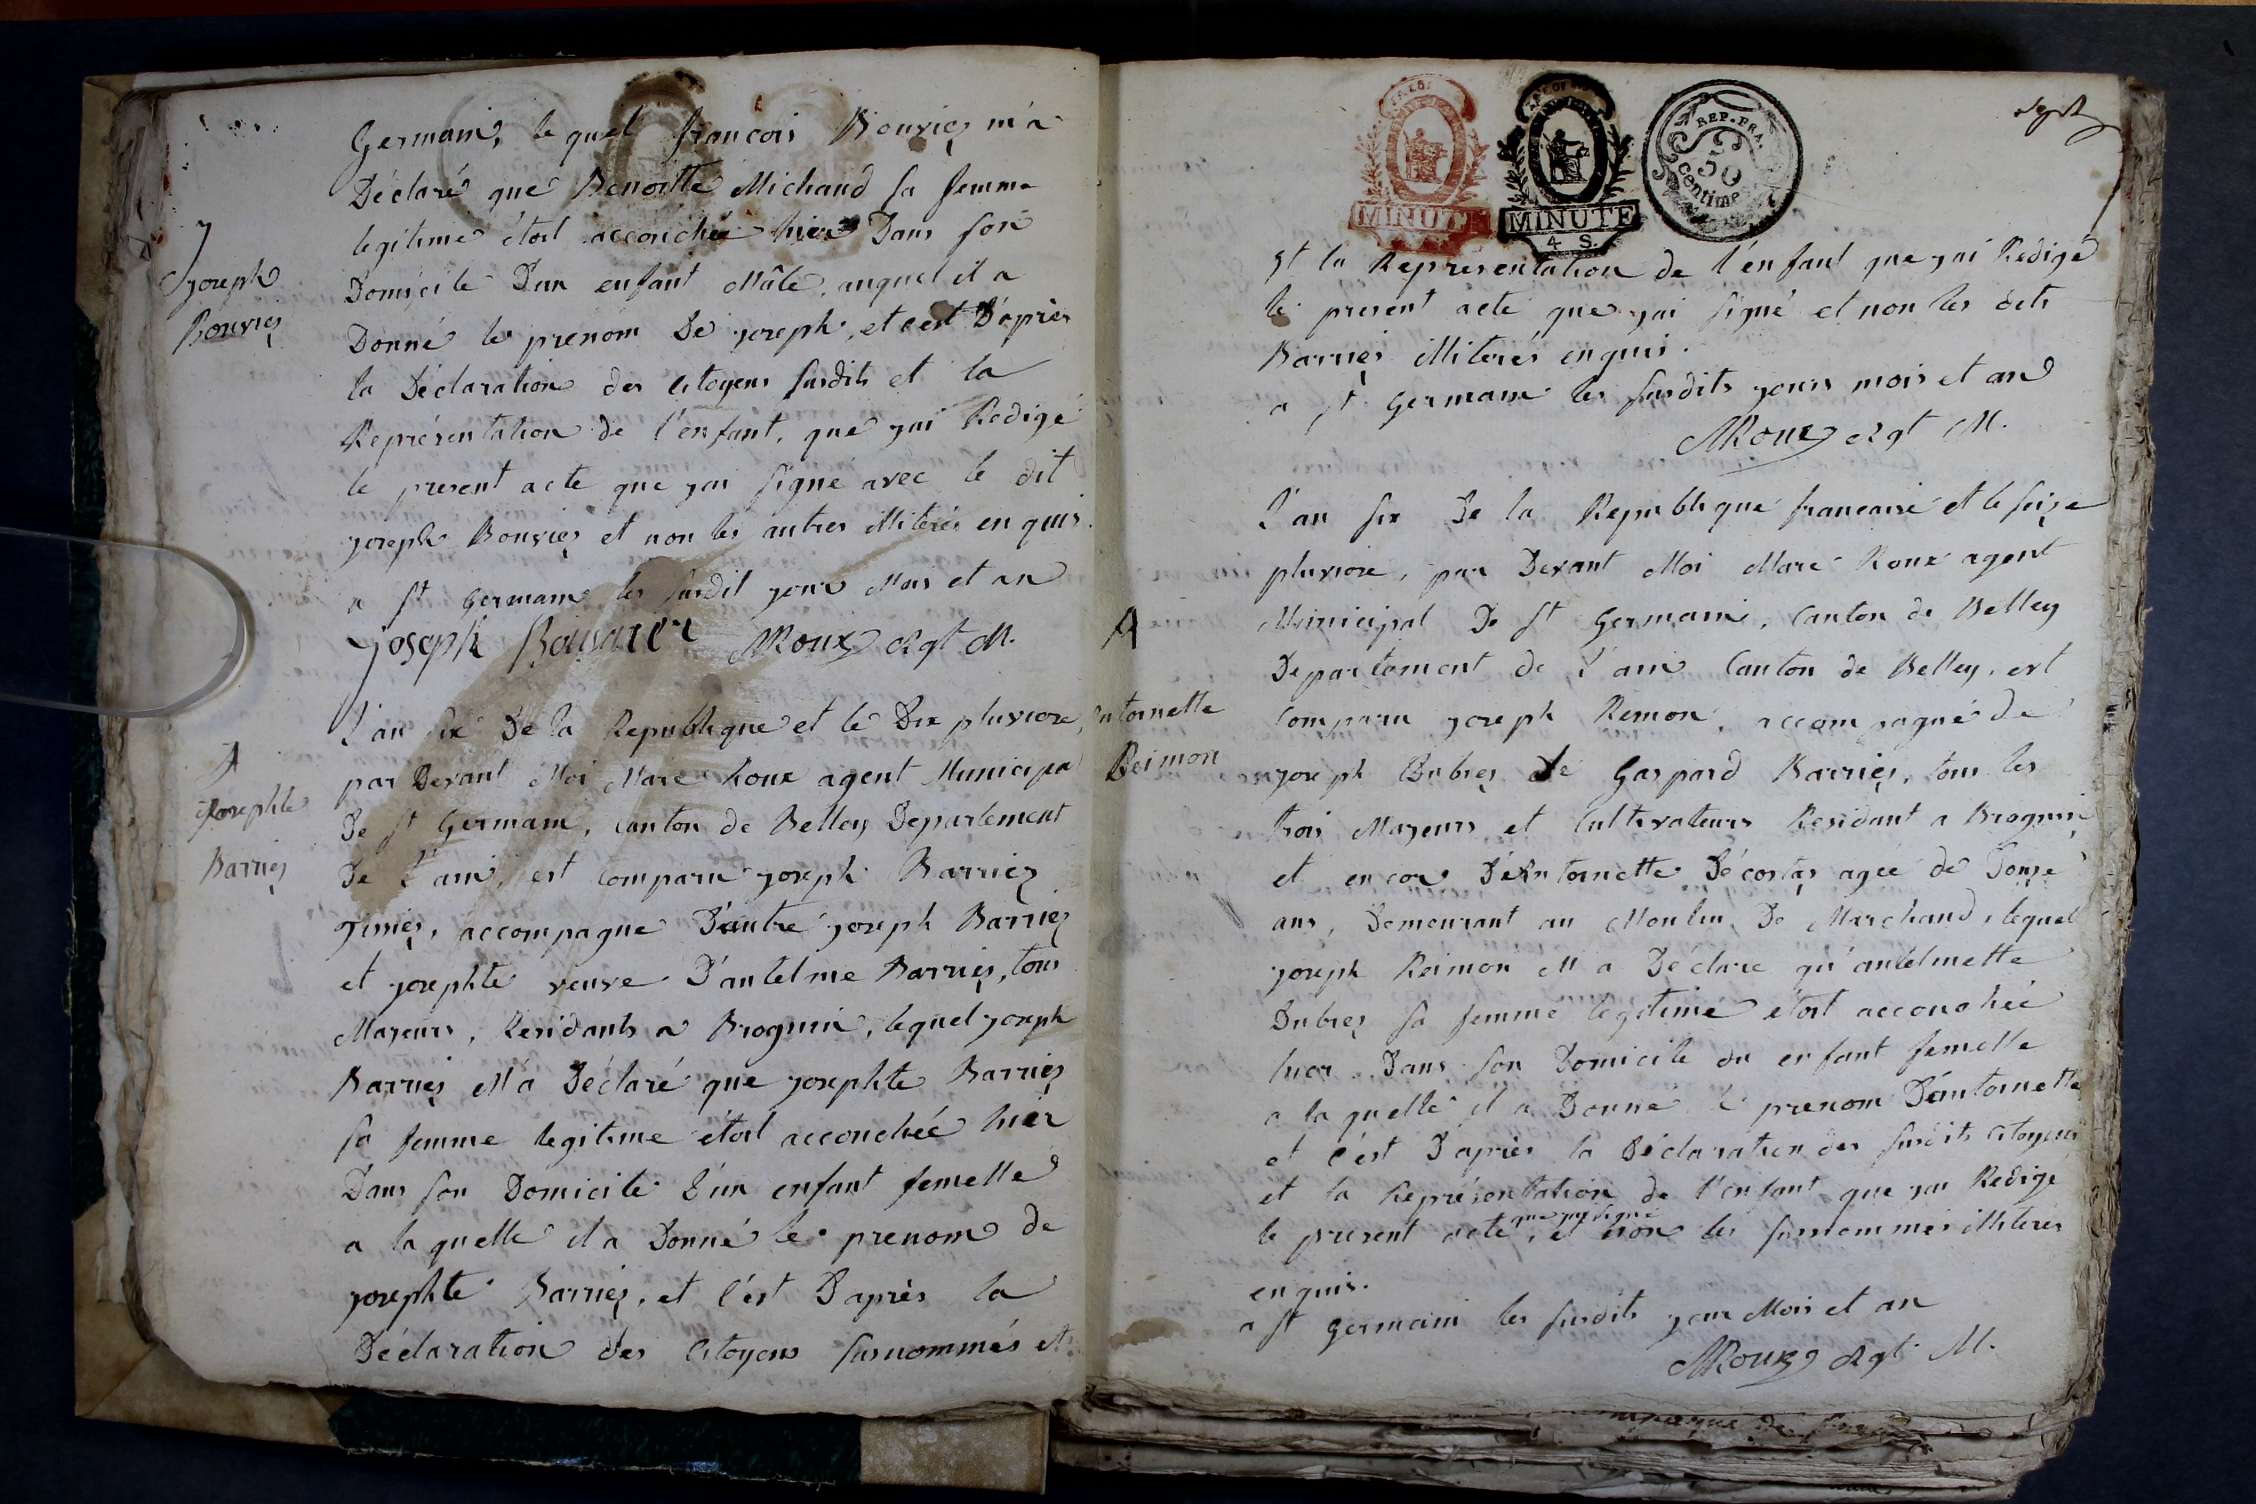 Germain, le quel françois Bouvier m'a
Déclaré que Benoitte Michaud sa femme
legitime étoit accouchée hier Dans son
Domicile D'un enfant Mâle, auquel il a
Donné le prenom De joseph, et c'est D'après
la Déclaration des citoyens susdits et la
Représentation de l'enfant, que j'ai Redigé
le present acte que j'ai signé avec le dit
joseph Bouvier et non les autres illiterés enquis.
a st Germain les susdit jour Mois et an
joseph Bouvier MRoux Agt M.
J
joseph
Bouvier
L'an six De la Republique et le Dix pluviose,
par Devant Moi Marc Roux agent Municipal
De st Germain, canton de Belley Departement
De L'ain, est comparu joseph Barrier
accompagné D'autre joseph Barrier
et josephte veuve D'antelme Barrier, tous
Majeurs, Residants a Brognin, lequel joseph
Barrier M'a Déclaré que josephte Barrier
sa femme legitime étoit accouchée hier
Dans son Domicile D'un enfant femelle
a la quelle il a Donné le prenom de
josephte Barrier, et c'est D'après la
Déclaration des citoyens susnommés et
J
josephte
Barrier
sept
REP. FRA.
50
centime
MINUTE
MINUTE
4 S.
et la Representation de l'enfant que j'ai Redigé
le present acte que j'ai signé et non les dits
Barrier illiterés enquis.
a st Germain les susdits jours mois et an
MRoux Agt M.
L'an six De la Republique francaise et le seize
pluviose, par Devant Moi Marc Roux agent
Municipal De st Germain, Canton de Belley
Departement de L'ain Canton de Belley, est
comparu joseph Remon, accompagné de
joseph Dubrez de Gaspard Barrier, tous les
trois Majeurs et Cultivateurs Residant a Brognin
et encore D'Antoinette Décostas agée de Douze
ans, Demeurant au Moulin De Marchand, lequel
joseph Reimon M'a Déclaré qu'antelmette
Dubrez sa femme legitime étoit accouchée
hier Dans son Domicile du enfant femelle
a la quelle il a Donné le prenom D'antoinette
et c'est D'après la Déclaration des susdits citoyens
et la Représentation de l'enfant que j'ai Redigé
le present acte, que j'ai signé et non les susnommés illiterés
enquis.
a st Germain les susdits jour Mois et an
MRoux Agt M.
A
antoinette
Reimon